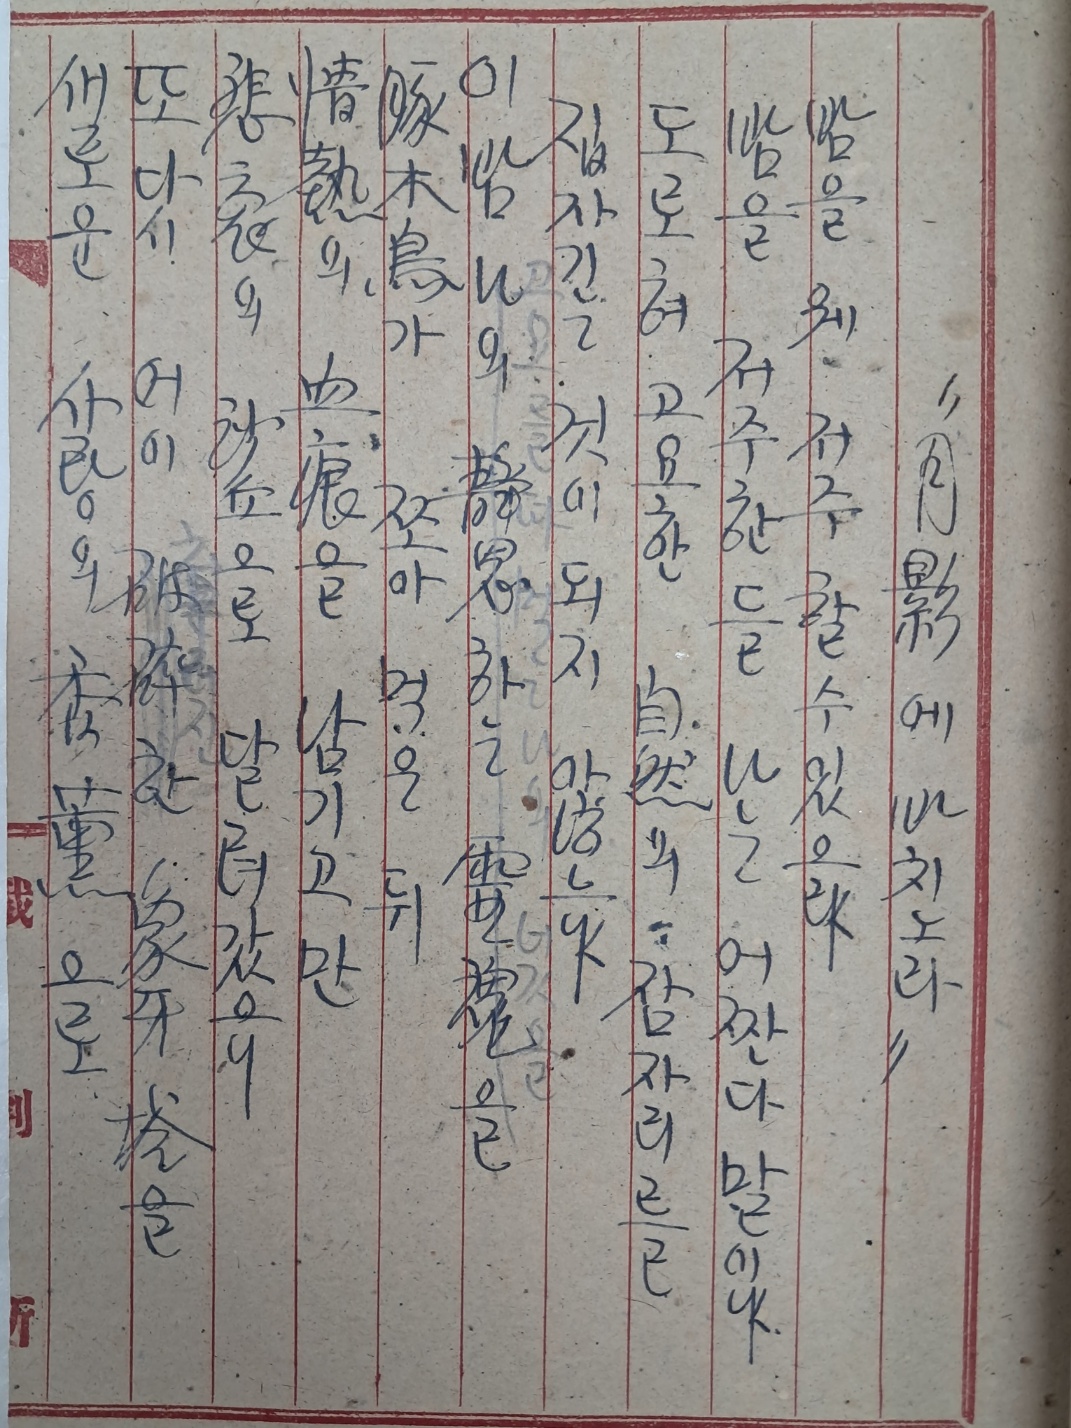 "月影에 빗치노라"
밤을 웨 저주할수있으랴
밤을 저주한들 난ㄴ 어찐다 말이냐
도로혀 고요한 自然의 잠자리를
집자긴ㄴ 것이 되지 않느냐
이밤 나의 靜思하는 靈魂을
啄木鳥가 쪼아 먹은 뒤
情熱의 血痕을 남기고만
의 沙丘으로 달려갔으니
또다시 어이 破碎한 象牙塔을
새로운 사랑의 香薰으로
裁
判
所